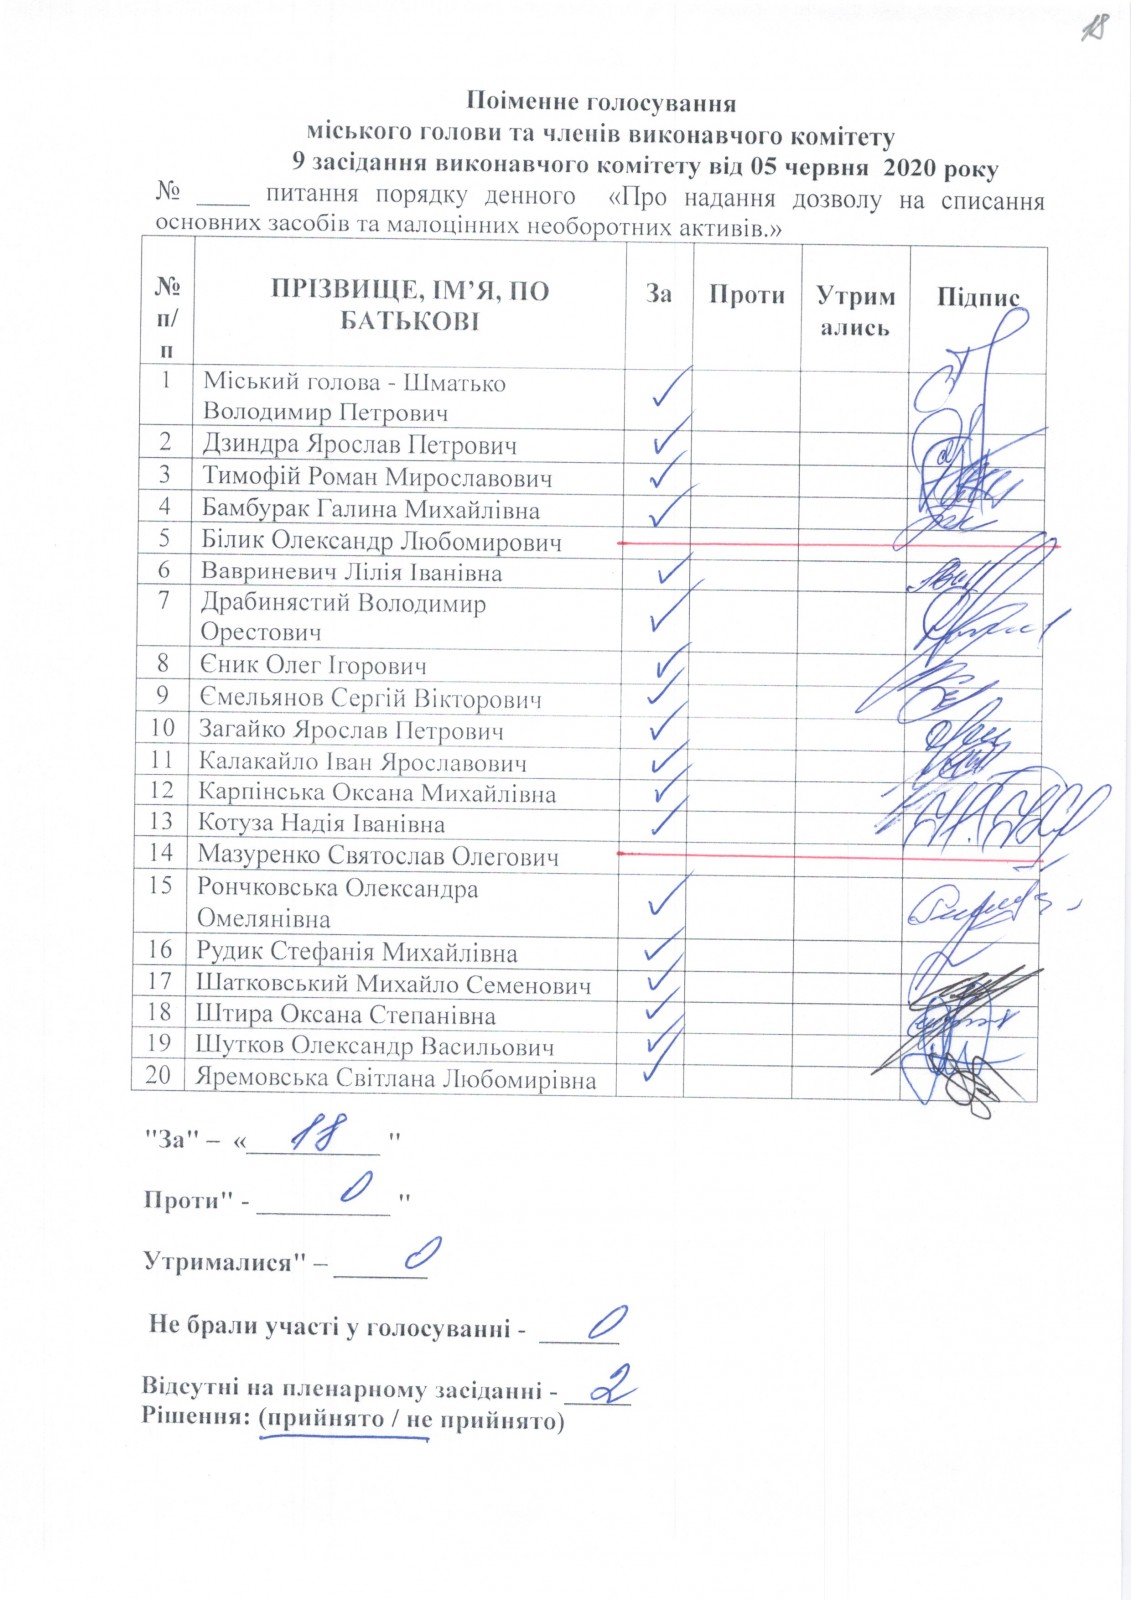 18
Поіменне голосування
міського голови та членів виконавчого комітету
9 засідання виконавчого комітету від 05 червня 2020 року
№ ____ питання порядку денного «Про надання дозволу на списання
основних засобів та малоцінних необоротних активів.»
№ п/п ПРІЗВИЩЕ, ІМ’Я, ПО БАТЬКОВІ За Проти Утримались Підпис
1 Міський голова - Шматько
Володимир Петрович ✓
2 Дзиндра Ярослав Петрович ✓
3 Тимофій Роман Мирославович ✓
4 Бамбурак Галина Михайлівна ✓
5 Білик Олександр Любомирович
6 Вавриневич Лілія Іванівна ✓
7 Драбинястий Володимир
Орестович ✓
8 Єник Олег Ігорович ✓
9 Ємельянов Сергій Вікторович ✓
10 Загайко Ярослав Петрович ✓
11 Калакайло Іван Ярославович ✓
12 Карпінська Оксана Михайлівна ✓
13 Котуза Надія Іванівна ✓
14 Мазуренко Святослав Олегович
15 Рончковська Олександра
Омелянівна ✓
16 Рудик Стефанія Михайлівна ✓
17 Шатковський Михайло Семенович ✓
18 Штира Оксана Степанівна ✓
19 Шутков Олександр Васильович ✓
20 Яремовська Світлана Любомирівна ✓
"За" – «18 "
Проти" - 0 "
Утрималися" – 0
Не брали участі у голосуванні - 0
Відсутні на пленарному засіданні - 2
Рішення: (прийнято / не прийнято)